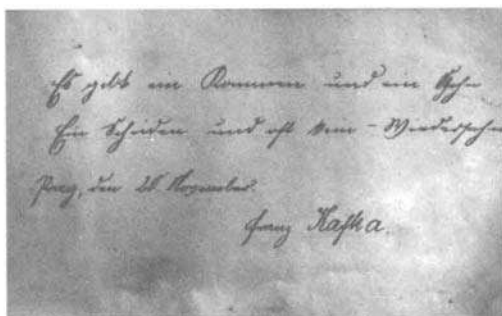 Es gibt ein Kommen und ein Gehn
Ein Scheiden und oft kein – Wiedersehn
Prag, den 20. November.
Franz Kafka.